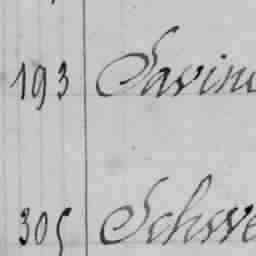 193 Savin
305 Schwe